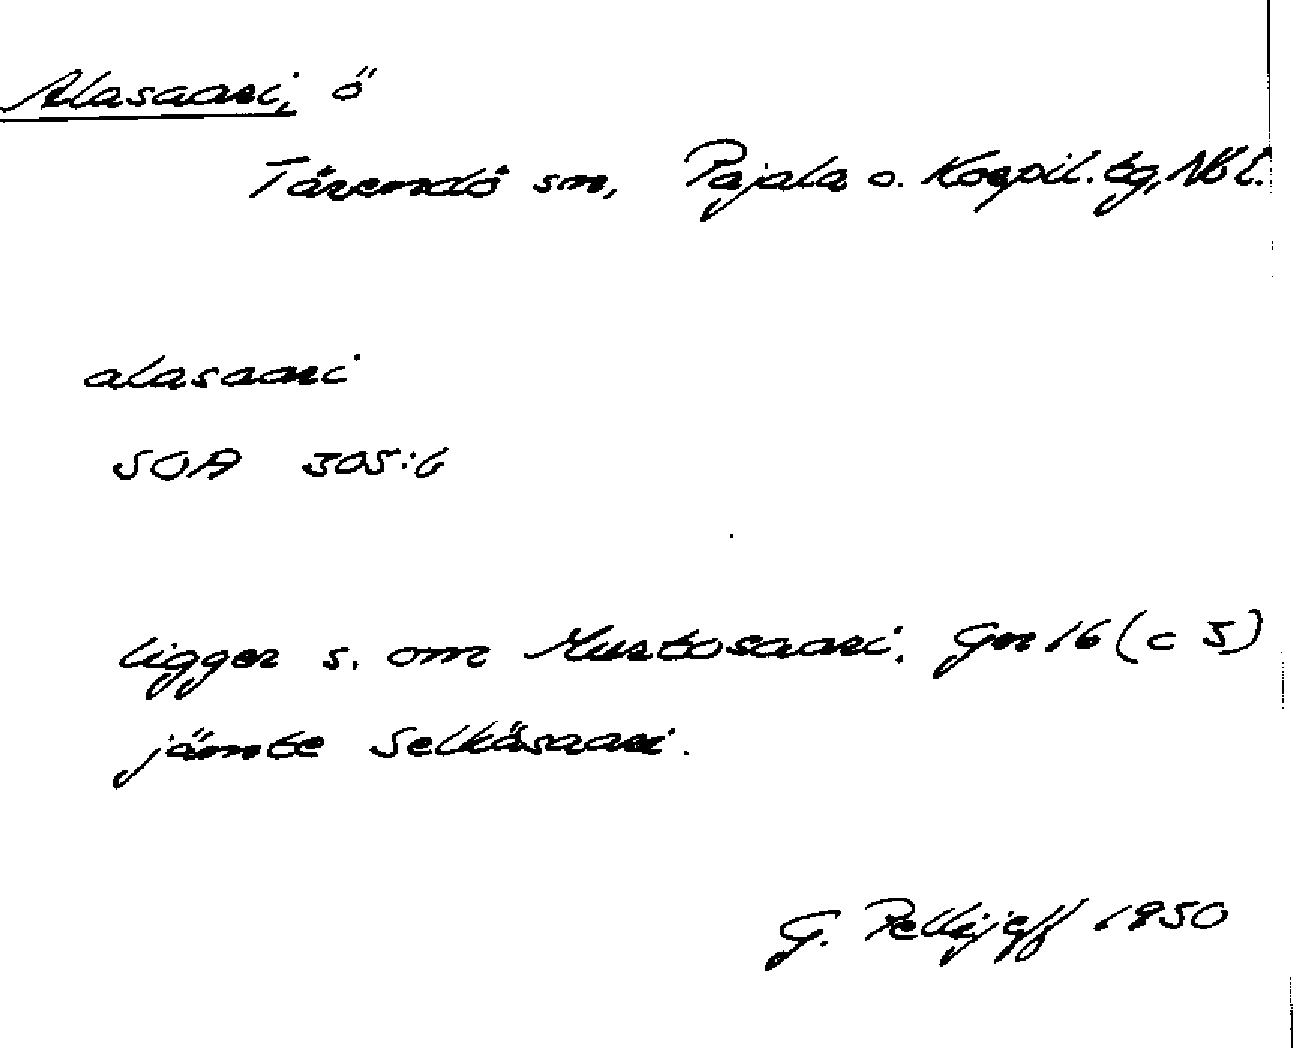 Alasaari, ö
Tärendö sn, Pajala o. Korpil. tg, NbL.
alasaari
SOA 305:6
ligger s. om Mustosaari. Gn 16 (c 5)
jämte Selkäsaari.
G. Pellijeff 1950